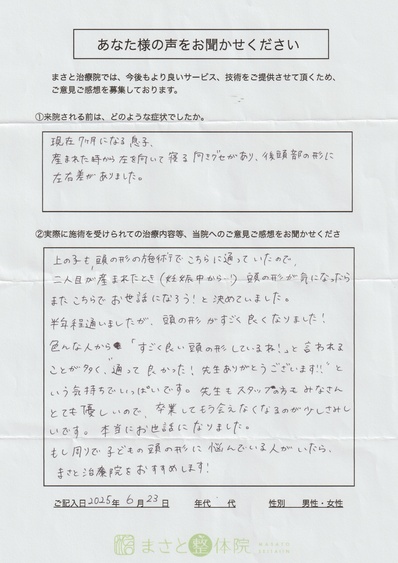 あなた様の声をお聞かせください
まさと治療院では、今後もより良いサービス、技術をご提供させて頂くため、
ご意見ご感想を募集しております。
①来院される前は、どのような症状でしたか。
現在7ヶ月になる息子、
産まれた時から左を向いて寝る向きグセがあり、後頭部の形に
左右差がありました。
②実際に施術を受けられての治療内容等、当院へのご意見ご感想をお聞かせくださ
上の子も頭の形の施術でこちらに通っていたので、
二人目が産まれたとき(妊娠中から!)頭の形が気になったら
またこちらでお世話になろう!と決めていました。
半年程通いましたが、頭の形がすごく良くなりました!
色んな人から「すごく良い頭の形しているね!」と言われる
ことが多く、"通って良かった!先生ありがとうございます!!"と
いう気持ちでいっぱいです。先生もスタッフの方もみなさん
とても優しいので、卒業してもう会えなくなるのが少しさみし
いです。本当にお世話になりました。
もし周りで子どもの頭の形に悩んでいる人がいたら、
まさと治療院をおすすめします!
ご記入日 2025年 6月 23日 年代 代 性別 男性・女性
まさと整体院
MASATO SEITAIIN